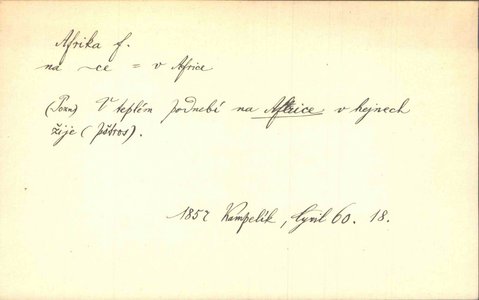 Afrika f.
na ~ce = v Africe
(Pozn) V teplém podnebí na Africe v hejnech
žije (pštros).
1857 Kampelík, Cyril 60. 18.